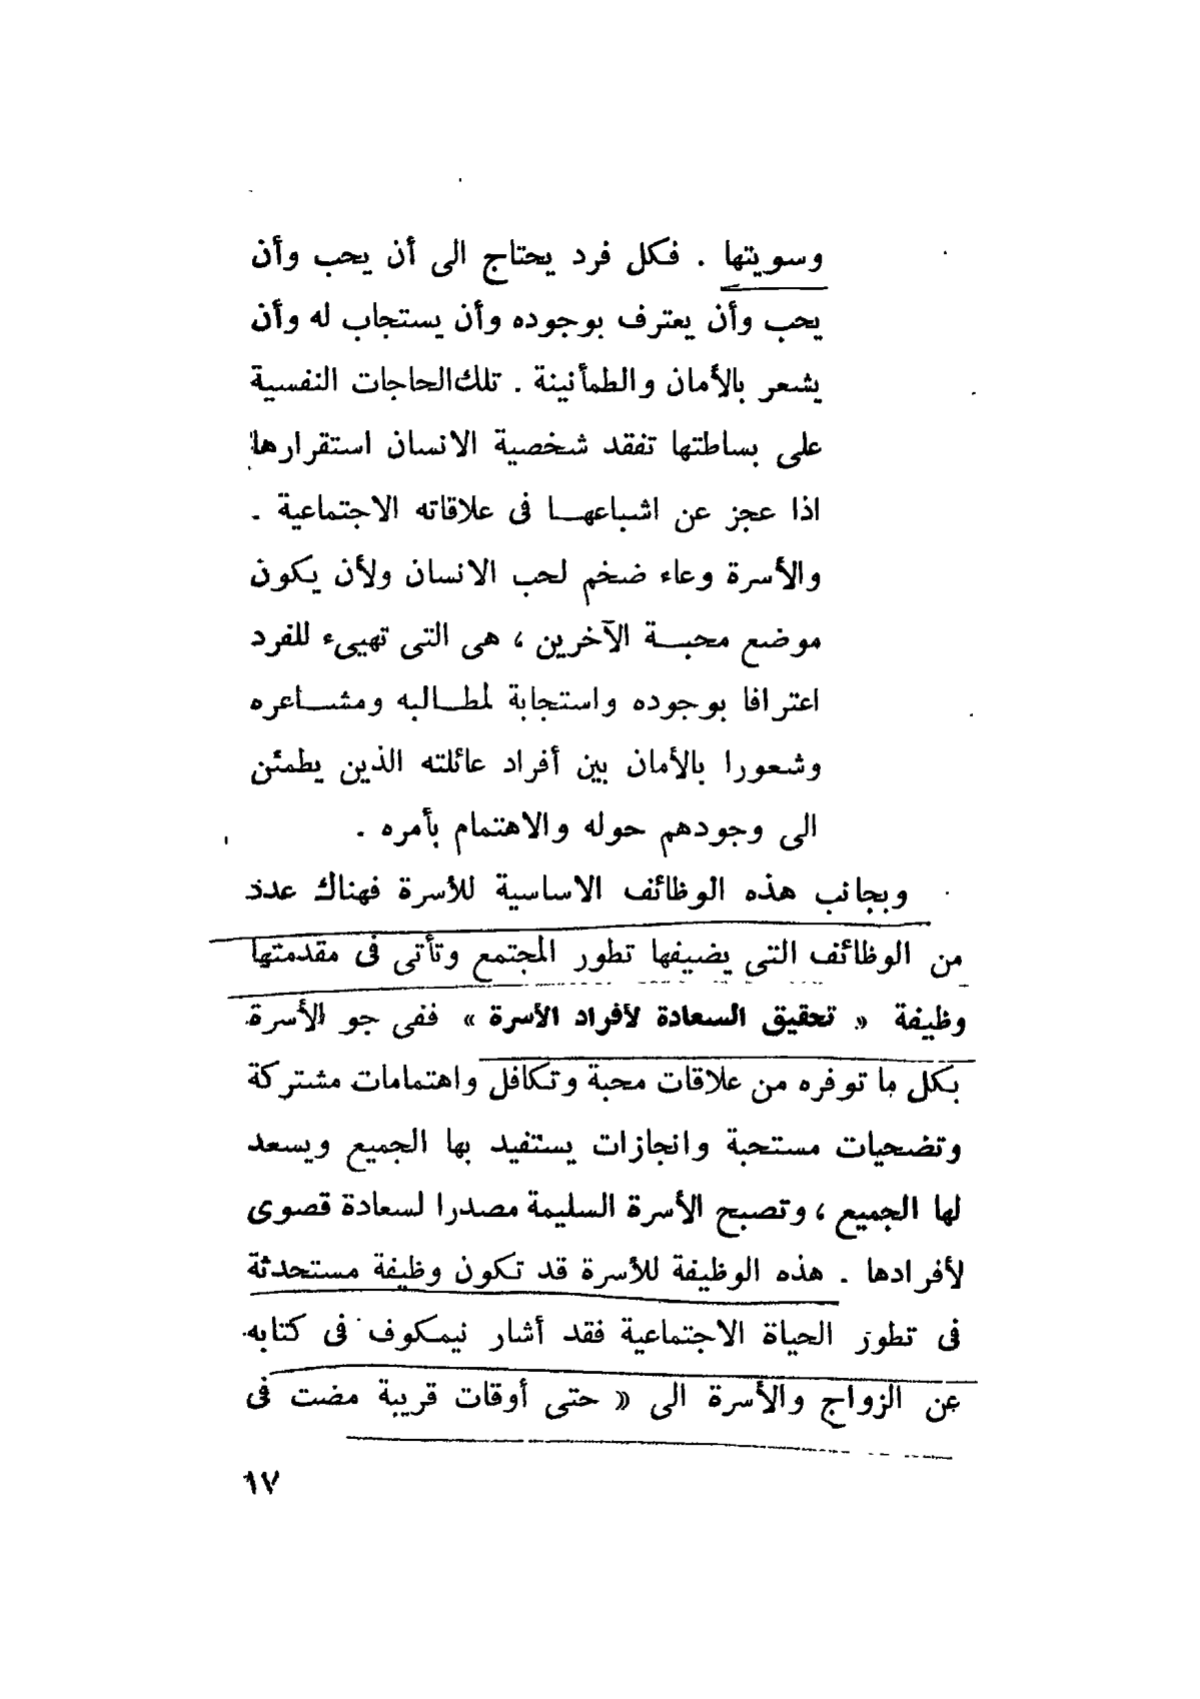 وسويتها . فكل فرد يحتاج الى أن يحب وأن
يحب وأن يعترف بوجوده وأن يستجاب له وأن
يشعر بالأمان والطمأنينة . تلك الحاجات النفسية
على بساطتها تفقد شخصية الانسان استقرارها
اذا عجز عن اشباعهـا فى علاقاته الاجتماعية .
والأسرة وعاء ضخم لحب الانسان ولأن يكون
موضع محبـة الآخرين ، هى التى تهيىء للفرد
اعترافا بوجوده واستجابة لمطـالبه ومشـاعره
وشعورا بالأمان بين أفراد عائلته الذين يطمئن
الى وجودهم حوله والاهتمام بأمره .
وبجانب هذه الوظائف الاساسية للأسرة فهناك عدد
من الوظائف التى يضيفها تطور المجتمع وتأتى فى مقدمتها
وظيفة « تحقيق السعادة لأفراد الأسرة » ففى جو الأسرة
بكل ما توفره من علاقات محبة وتكافل واهتمامات مشتركة
وتضحيات مستحبة وانجازات يستفيد بها الجميع ويسعد
لها الجميع ، وتصبح الأسرة السليمة مصدرا لسعادة قصوى
لأفرادها . هذه الوظيفة للأسرة قد تكون وظيفة مستحدثة
فى تطور الحياة الاجتماعية فقد أشار نيمكوف فى كتابه
عن الزواج والأسرة الى « حتى أوقات قريبة مضت فى
١٧